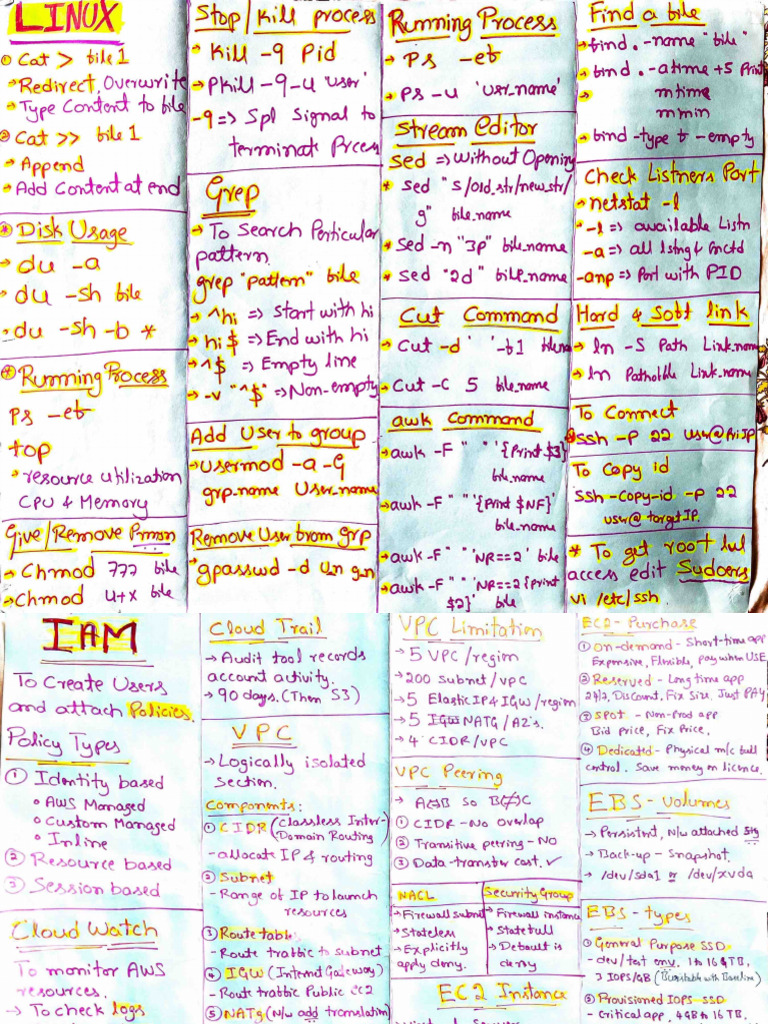 LINUX
① Cat > file1
→ Redirect, Overwrite
→ Type Content to file
② Cat >> file1
→ Append
→ Add Content at end
* Disk Usage
→ du -a
→ du -sh file
→ du -sh -b *
* Running Process
Ps -ef
top
→ resource utilization
CPU & Memory
Give/Remove Prmsn
→ Chmod 777 file
→ Chmod u+x file
Stop/Kill process
→ Kill -9 Pid
→ Pkill -9 -u 'user'
-9 => Spl Signal to
terminate Prcess
Grep
→ To Search Perticular
pattern.
grep "pattern" file
→ ^hi => Start with hi
→ hi$ => End with hi
→ ^$ => Empty line
→ -v "^$" => Non-empty
Add User to group
→ usermod -a -G
grp_name User_name
Remove User from grp
→ gpasswd -d Un gn
Running Process
→ Ps -ef
→ Ps -u 'usr_name'
Stream Editor
Sed => Without Opening
* Sed "s/old_str/new_str/
g" file_name
→ Sed -n "3p" file_name
* Sed "2d" file_name
Cut Command
→ Cut -d ' ' -f1 filename
→ Cut -C 5 file_name
awk Command
→ awk -F " " '{Print $3}'
file_name
→ awk -F " " '{Print $NF}'
file_name
→ awk -F " " 'NR==2' file
→ awk -F " " 'NR==2{print
$2}' file
Find a file
→ find . -name "file"
→ find . -atime +5 Print
mtime
mmin
→ find -type f -empty
Check Listners Port
→ netstat -l
-l => available Listn
-a => all lstng & Cnctd
-anp => Port with PID
Hard & Soft link
→ ln -S Path Link_name
→ ln Pathoffile Link_name
To Connect
ssh -P 22 usr@PriIP
To Copy id
SSh -Copy-id -p 22
user@targetIP.
* To get root lvl
access edit Sudoers
vi /etc/ssh.
IAM
To Create Users
and attach Policies.
Policy Types
① Identity based
o AWS Managed
o Custom Managed
o Inline
② Resource based
③ Session based
Cloud Watch
To monitor AWS
resources.
→ To check logs
Cloud Trail
→ Audit tool records
account activity.
→ 90 days. (Then S3)
VPC
→ Logically isolated
Section.
Components:
① CIDR (Classless Inter-
Domain Routing)
- allocate IP & routing
② Subnet
- Range of IP to launch
resources
③ Route table
- Route traffic to subnet
④ IGW (Internet Gateway)
- Route traffic Public EC2
⑤ NATG (N/w add translation)
VPC Limitation
→ 5 VPC/region
→ 200 Subnet/vpc
→ 5 Elastic IP & IGW/region
→ 5 IGW NATG/AZ's.
→ 4 CIDR/VPC
VPC Peering
→ A⇔B So B⇎C
① CIDR - No overlap
② Transitive peering - No
③ Data-transfer cost. ✓
NACL
→ Firewall subnet
→ Stateless
→ Explicitly
apply deny.
Security Group
→ Firewall instance
→ Statefull
→ Default is
deny
EC2 Instance
EC2 - Purchase
① On-demand - Short-time app
Expensive, Flexible, pay when USE
② Reserved - Long time app
24/7, Discount, Fix Size, Just PAY
③ SPOT - Non-Prod app
Bid Price, Fix Price.
④ Dedicated - Physical m/c full
control. Save money on licence.
EBS - Volumes
→ Persistent, N/w attached Stg
→ Back-up - Snapshot.
→ /dev/sda1 or /dev/xvda
EBS - types
① General Purpose SSD
- dev/test env. 1 to 16 TB,
3 IOPS/GB (Burstable with Baseline)
② Provisioned IOPS SSD
- Critical app, 4GB to 16 TB,